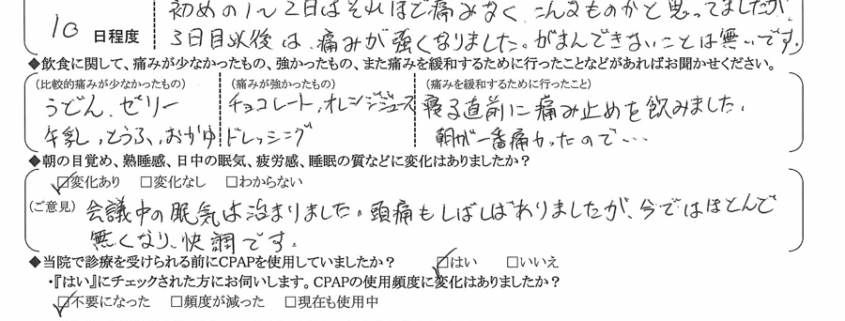 初めの1~2日はそれほど痛みなく、こんなものかと思ってましたが
10 日程度
3日目以後は、痛みが強くなりました。がまんできないことは無いです。
◆飲食に関して、痛みが少なかったもの、強かったもの、また痛みを緩和するために行ったことなどがあればお聞かせください。
(比較的痛みが少なかったもの) (痛みが強かったもの) (痛みを緩和するために行ったこと)
うどん、ゼリー チョコレート、オレンジジュース 寝る直前に痛み止めを飲みました。
牛乳、とうふ、おかゆ ドレッシング 朝が一番痛かったので…
◆朝の目覚め、熟睡感、日中の眠気、疲労感、睡眠の質などに変化はありましたか?
☑変化あり □変化なし □わからない
(ご意見) 会議中の眠気は治まりました。頭痛もしばしばありましたが、今ではほとんど
無くなり、快調です。
◆当院で診療を受けられる前にCPAPを使用していましたか? ☑はい □いいえ
・『はい』にチェックされた方にお伺いします。CPAPの使用頻度に変化はありましたか?
☑不要になった □頻度が減った □現在も使用中